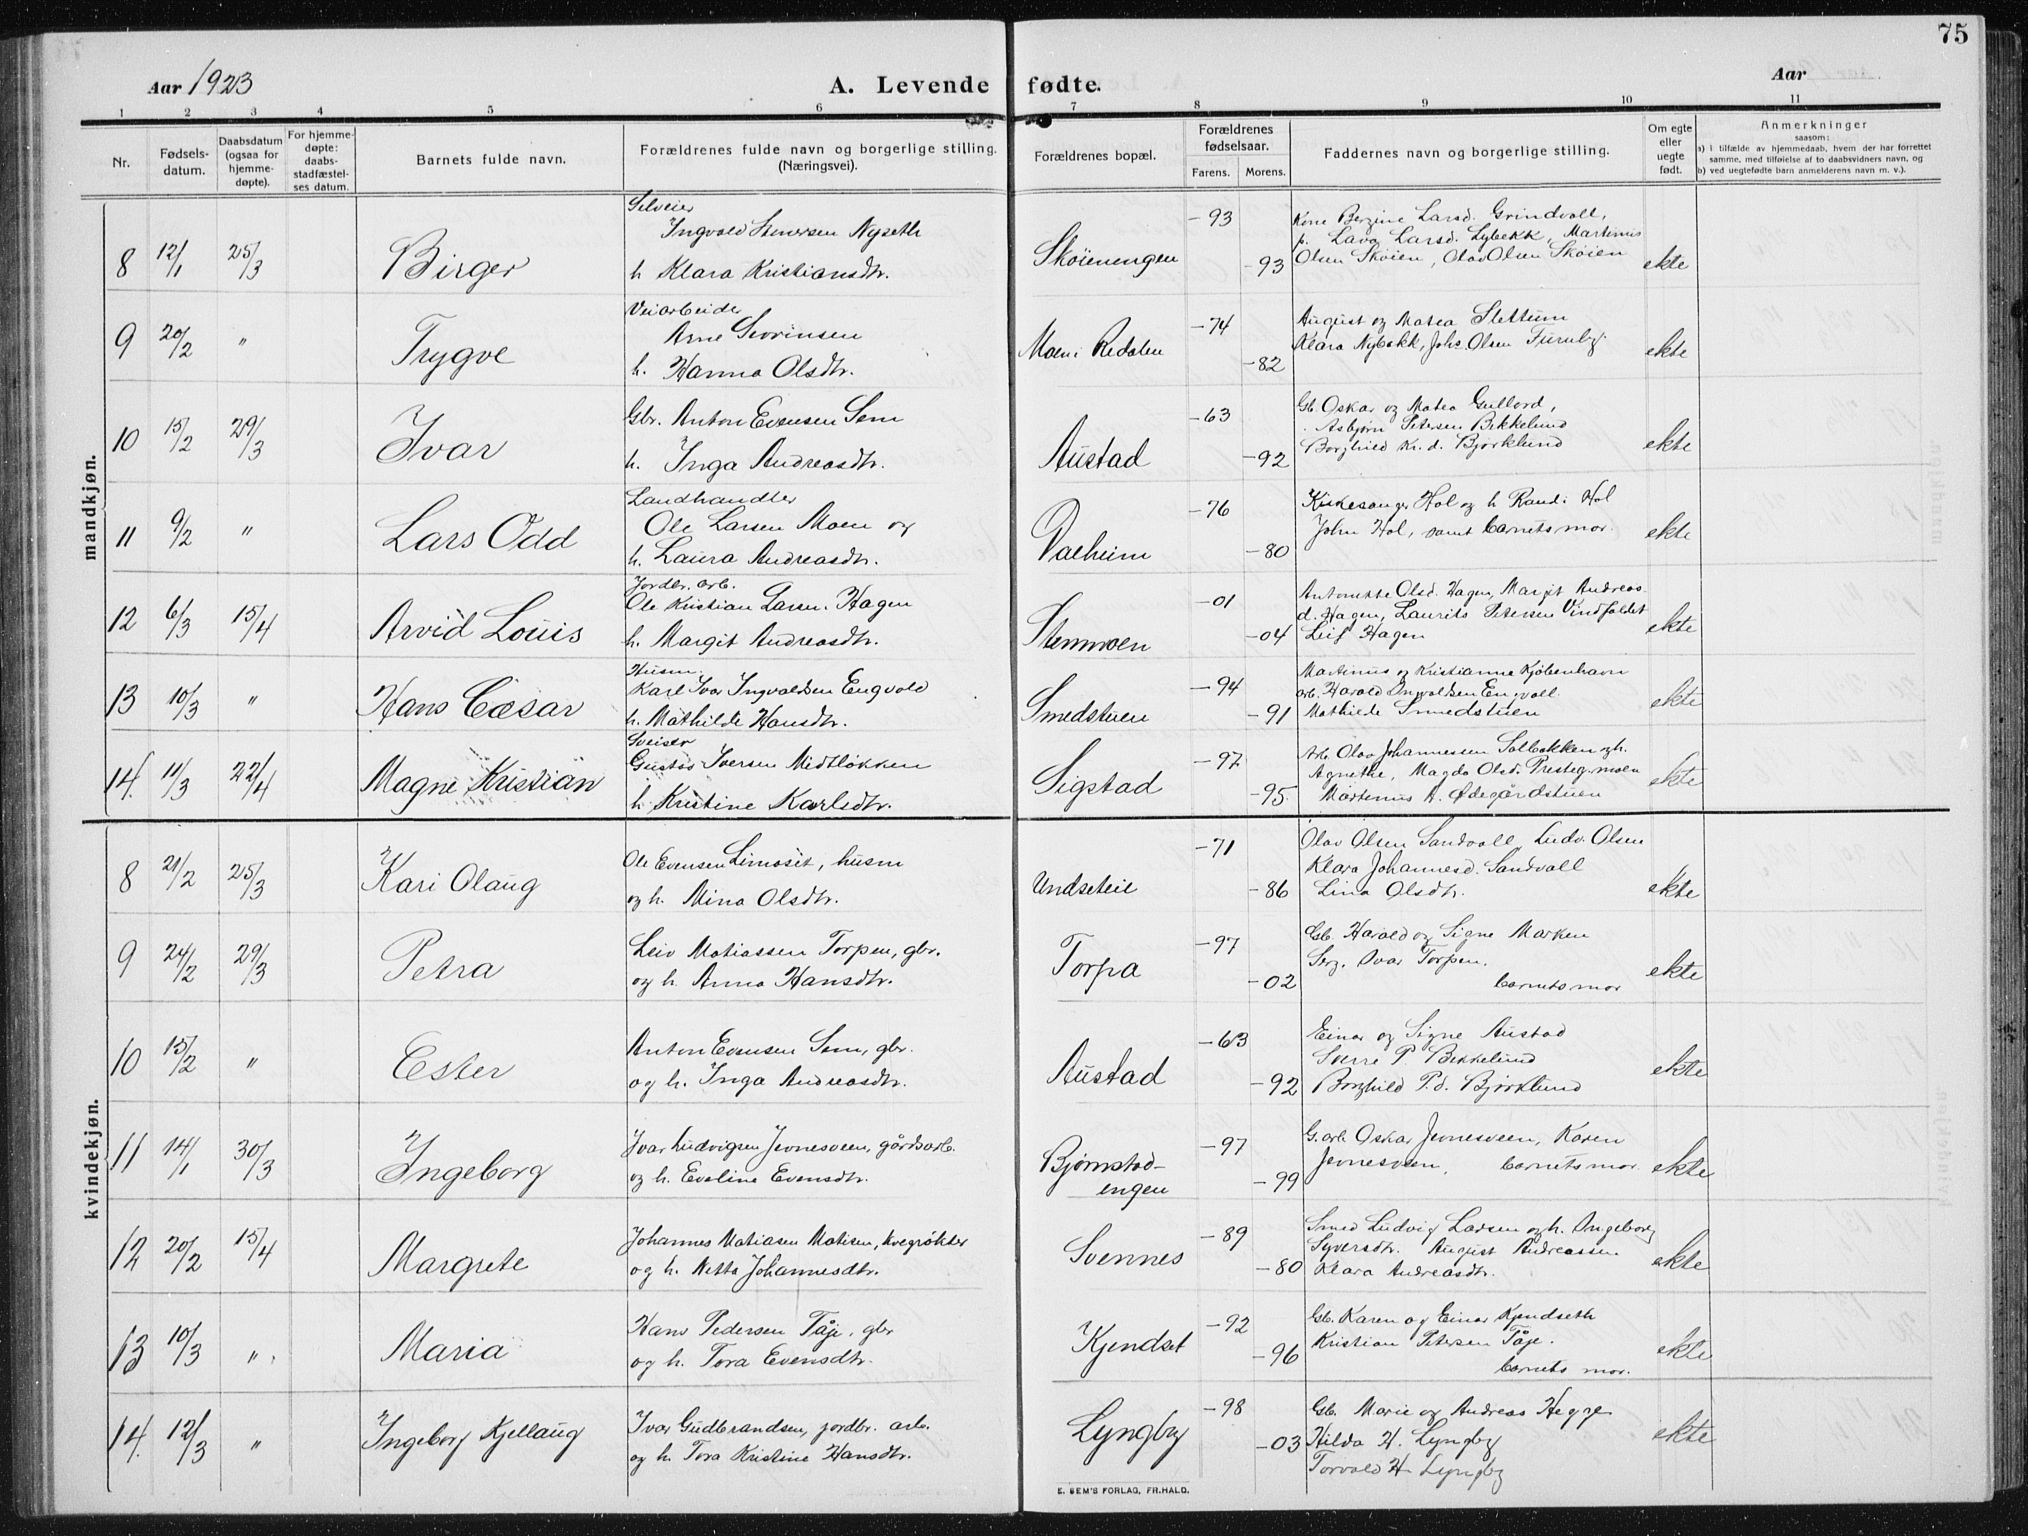 75
Aar 1923
A. Levende fødte.
Aar
1 2 3 4 5 6 7 8 9 10 11
Nr.
Fødsels-
datum.
Daabsdatum
(ogsaa for
hjemme-
døpte).
For hjemme-
døpte:
daabs-
stadfæstel-
ses datum.
Barnets fulde navn.
Forældrenes fulde navn og borgerlige stilling.
(Næringsvei).
Forældrenes bopæl.
Forældrenes
fødselsaar.
Farens. Morens.
Faddernes navn og borgerlige stilling.
Om egte
eller
uegte
født.
Anmerkninger
saasom:
a) i tilfælde av hjemmedaab, hvem der har forrettet
samme, med tilføielse af to daabsvidners navn, og
b) ved uegtefødte barn anmelderens navn m. v.).
mandkjøn.
8 12/1 25/3 Birger
Selveier
Ingvald Syversen Nyseth
h. Klara Kristiansdtr.
Skøienengen -93 -93
Kone Berzine Larsd. Grindvoll,
p. Lava Larsd. Lybekk, Martinus
Olsen Skøien, Olav Olsen Skøien
ekte
9 20/2 " Trygve
Veiarbeider
Arne Severinsen
h. Hanna Olsdtr.
Moen i Redalen -74 -82
August og Matea Slettum
Klara Nybakk, Johs. Olsen Furuby.
ekte
10 15/2 29/3 Ivar
Gbr. Anton Evensen Sem
h. Inga Andreasdtr.
Austad -63 -92
Gb. Oskar og Matea Gullord,
Asbjørn Petersen Bekkelund
Borghild Kr. d. Bjørklund
ekte
11 9/2 " Lars Odd
Landhandler
Ole Larsen Moen og
h. Laura Andreasdtr.
Valheim -76 -80
Kirkesanger Hol og h Randi Hol
John Hol, samt barnets mor.
ekte
12 6/3 15/4 Arvid Louis
Jordbr. arb.
Ole Kristian Larsen Hagen
h. Margit Andreasdtr.
Stenmoen -01 -04
Antonette Olsd. Hagen, Margit Andreas
d. Hagen, Laurits Petersen Vindfaldet
Leif Hagen
ekte
13 10/3 " Hans Cæsar
Husm.
Karl Ivar Ingvaldsen Engvold
h. Mathilde Hansdtr.
Smedstuen -94 -91
Martinus og Kristianne Kjøbenhavn
arb. Harald Ingvaldsen Engvoll.
Mathilde Smedstuen
ekte
14. 11/3 22/4 Magne Kristian
Sveiser
Gustav Iversen Midtløkken
h. Kristine Karlsdtr.
Sigstad -97 -95.
Arb. Olav Johannessen Solbakken og h.
Agnethe, Magda Olsd. Presteg.moen
Martinus A. Ødegårdstuen
ekte
kvindekjøn.
8 21/2 25/3 Kari Olaug
Ole Evensen Limoset, husm
og h. Mina Olsdtr.
Undseteie -71 -86
Olav Olsen Sandvoll, Ludv. Olsen
Klara Johannesd. Sandvoll
Lina Olsdtr.
ekte
9 24/2 29/3 Petra
Leiv Matiassen Torpen, gbr.
og h. Anna Hansdtr.
Torpa -97 -02
Gb. Harald og Signe Marken
Serg. Ivar Torpen.
barnets mor
ekte
10 15/2 " Ester
Anton Evensen Sem, gbr.
og h. Inga Andreasdtr.
Austad -63 -92
Einar og Signe Austad
Sverre P. Bekkelund
Borghild P.d. Bjørklund
ekte
11 14/1 30/3 Ingeborg
Ivar Ludvigsen Jevnesveen, gårdsarb.
og h. Eveline Evensdtr.
Bjørnstad-
engen -97 -99
G.arb Oskar Jevnesveen, Karen
Jevnesveen, barnets mor.
ekte
12 20/2 15/4 Margrete
Johannes Matiasen Motisen, kvegrøkter
og h. Netta Johannesdtr.
Svennes -89 -80
Smed Ludvig Larsen og h. Ingeborg
Syversdtr. August Andreassen
Klara Andreasdtr.
ekte
13 10/3 ". Maria
Hans Pedersen Tåje, gbr
og h. Tora Evensdtr.
Kjendset -92 -96
Gb. Karen og Einar Kjendseth
Kristian Petersen Tåje.
barnets mor.
ekte
14. 12/3 " Ingeborg Kjellaug
Ivar Gudbrandsen, jordbr. arb.
og h. Tora Kristine Hansdtr.
Lyngby -98 -03
Gb. Marie og Andreas Hegge
Hilda H. Lyngby
Torvald H. Lyngby
ekte
E. SEM'S FORLAG, FR.HALD.